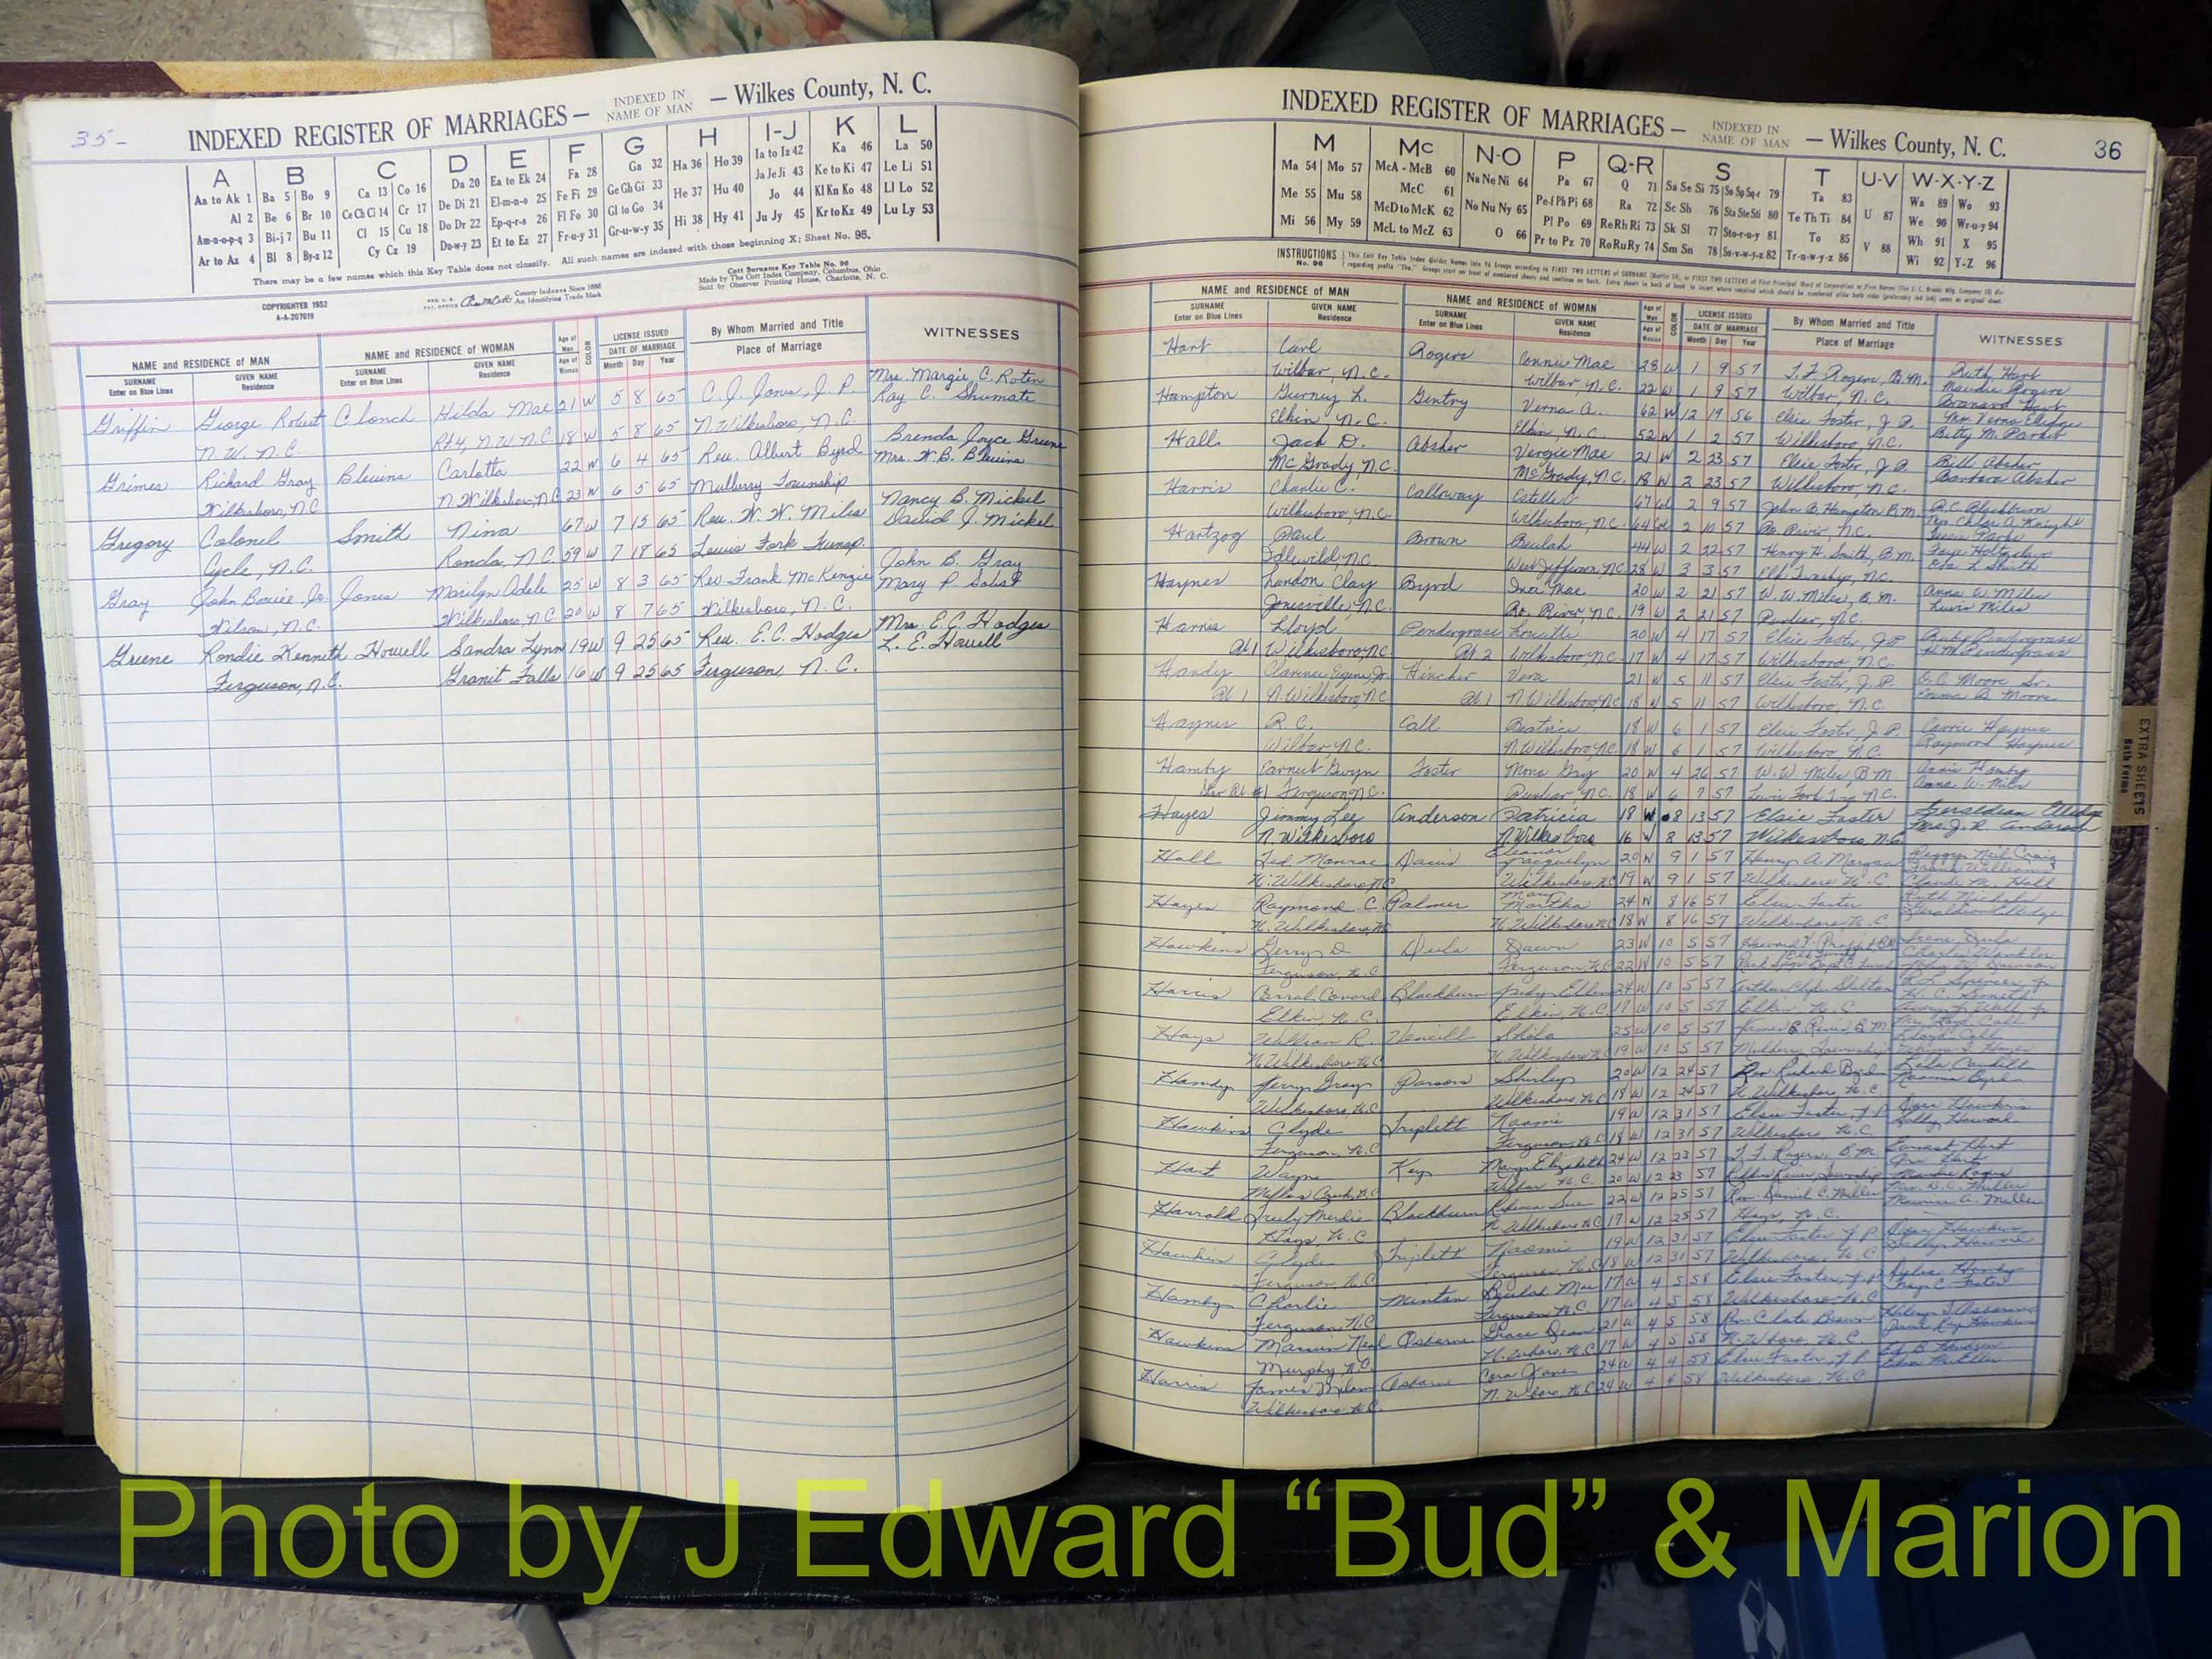 35-
INDEXED REGISTER OF MARRIAGES — INDEXED IN NAME OF MAN — Wilkes County, N. C.
A B C D E F G H I-J K L
Aa to Ak 1 Ba 5 Bo 9 Ca 13 Co 16 Da 20 Ea to Ek 24 Fa 28 Ga 32 Ha 36 Ho 39 Ia to Iz 42 Ka 46 La 50
Al 2 Be 6 Br 10 Ce Ch Ci 14 Cr 17 De Di 21 El-m-n-o 25 Fe Fi 29 Ge Gh Gi 33 He 37 Hu 40 Ja Je Ji 43 Ke to Ki 47 Le Li 51
Am-n-o-p-q 3 Bi-j 7 Bu 11 Cl 15 Cu 18 Do Dr 22 Ep-q-r-s 26 Fl Fo 30 Gl to Go 34 Hi 38 Hy 41 Jo 44 Kl Kn Ko 48 Ll Lo 52
Ar to Az 4 Bl 8 By-z 12 Cy Cz 19 Du-w-y 23 Et to Ez 27 Fr-u-y 31 Gr-u-w-y 35 Ju Jy 45 Kr to Kz 49 Lu Ly 53
There may be a few names which this Key Table does not classify. All such names are indexed with those beginning X; Sheet No. 95.
COPYRIGHTED 1952
A-A-207619
County Indexes Since 1888
An Identifying Trade Mark
Cott Surname Key Table No. 96
Made by The Cott Index Company, Columbus, Ohio
Sold by Observer Printing House, Charlotte, N. C.
NAME and RESIDENCE OF MAN NAME and RESIDENCE OF WOMAN Age of Man COLOR LICENSE ISSUED By Whom Married and Title WITNESSES
SURNAME GIVEN NAME SURNAME GIVEN NAME Age of Woman DATE OF MARRIAGE Place of Marriage
Enter on Blue Lines Residence Enter on Blue Lines Residence Month Day Year
Griffin George Robert Clonch Hilda Mae 21 W 5 8 65 C. J. Jones, J. P. Mrs. Margie C. Roten
N.W. N.C. Rt 4, N.W. N.C. 18 W 5 8 65 N. Wilkesboro, N.C. Ray C. Shumate
Grimes Richard Gray Blevins Carlotta 22 W 6 4 65 Rev. Albert Byrd Brenda Joyce Greene
Wilkesboro, N.C. N. Wilkesboro, N.C. 23 W 6 5 65 Mulberry Township Mrs. W.B. Blevins
Gregory Colonel Smith Nina 67 W 7 15 65 Rev. W. W. Miles Nancy B. Mickel
Cycle, N.C. Ronda, N.C. 59 W 7 18 65 Lewis Fork Twnsp. David J. Mickel
Gray John Bowie Jr. Jones Marilyn Adele 25 W 8 3 65 Rev. Frank McKenzie John B. Gray
Wilson, N.C. Wilkesboro, N.C. 20 W 8 7 65 Wilkesboro, N.C. Mary P.
Greene Rondie Kenneth Howell Sandra Lynn 19 W 9 25 65 Rev. E.C. Hodges Mrs. E.C. Hodges
Ferguson, N.C. Granit Falls 16 W 9 25 65 Ferguson, N.C. L. E. Howell
INDEXED REGISTER OF MARRIAGES — INDEXED IN NAME OF MAN — Wilkes County, N. C. 36
M Mc N-O P Q-R S T U-V W-X-Y-Z
Ma 54 Mo 57 McA - McB 60 Na Ne Ni 64 Pa 67 Q 71 Sa Se Si 75 So Sp Sq-r 79 Ta 83 U 87 Wa 89 Wo 93
Me 55 Mu 58 McC 61 No Nu Ny 65 Pe-f Ph Pi 68 Ra 72 Sc Sh 76 Sta Ste Sti 80 Te Th Ti 84 V 88 We 90 Wr-u-y 94
Mi 56 My 59 McD to McK 62 O 66 Pl Po 69 Re Rh Ri 73 Sk Sl 77 Sto-r-u-y 81 To 85 Wh 91 X 95
McL to McZ 63 Pr to Pz 70 Ro Ru Ry 74 Sm Sn 78 Su-v-w-y-z 82 Tr-u-w-y-z 86 Wi 92 Y-Z 96
INSTRUCTIONS
No. 96
NAME and RESIDENCE OF MAN NAME and RESIDENCE OF WOMAN Age of Man COLOR LICENSE ISSUED By Whom Married and Title WITNESSES
SURNAME GIVEN NAME SURNAME GIVEN NAME Age of Woman DATE OF MARRIAGE Place of Marriage
Enter on Blue Lines Residence Enter on Blue Lines Residence Month Day Year
Hart Carl Rogers Connie Mae 28 W 1 9 57 T. F. Rogers, B.M. Ruth Hart
Wilbar, N.C. Wilbar, N.C. 22 W 1 9 57 Wilbar, N.C. Maudie Rogers
Hampton Gurney L. Gentry Verna A. 62 W 12 19 56 Elsie Foster, J.P. Mrs. Verna Elledge
Elkin, N.C. Elkin, N.C. 52 W 1 2 57 Wilkesboro, N.C. Betty M. Parker
Hall Jack D. Absher Vergie Mae 21 W 2 23 57 Elsie Foster, J.P. Bill Absher
McGrady, N.C. McGrady, N.C. 18 W 2 23 57 Wilkesboro, N.C. Barbara Absher
Harris Charlie C. Calloway Estelle 67 Col 2 9 57 John B. Hampton B.M. R.C. Blackburn
Wilkesboro, N.C. Wilkesboro, N.C. 64 Col 2 10 57 Ro. River, N.C. Mrs. Chloe A. Knight
Hartzog Paul Brown Beulah 44 W 2 22 57 Henry H. Smith, B.M.
Idlewild, N.C. West Jefferson, N.C. 28 W 3 3 57 Elk Twship, N.C. Smith
Haynes London Clay Byrd Inez Mae 20 W 2 21 57 W.W. Miles, B.M. Anna W. Miles
Jonesville, N.C. Ro. River, N.C. 19 W 2 21 57 Purlear, N.C. Lewis Miles
Harris Lloyd Pendergrass Louille 20 W 4 17 57 Elsie Foster, J.P. Ruby Pendergrass
Rt 1 Wilkesboro, N.C. Rt. 2 Wilkesboro, N.C. 17 W 4 17 57 Wilkesboro, N.C. H.M. Pendergrass
Handy Clarence Eugene, Jr. Hincher Vera 21 W 5 11 57 Elsie Foster, J.P. G.C. Moore Sr.
Rt 1 N. Wilkesboro, N.C. Rt 1 N. Wilkesboro, N.C. 18 W 5 11 57 Wilkesboro, N.C. Emma B. Moore
Haynes R.C. Call Beatrice 18 W 6 1 57 Elsie Foster, J.P. Carrie Haynes
Wilbar, N.C. N. Wilkesboro, N.C. 18 W 6 1 57 Wilkesboro, N.C. Raymond Haynes
Hamby Earnest Gwyn Foster Mona Gray 20 W 4 26 57 W.W. Miles, B.M. Annie Hamby
Star Rt. #1 Ferguson, N.C. Purlear, N.C. 18 W 6 7 57 Lewis Fork Twp. N.C. Anna W. Miles
Hayes Jimmy Lee Anderson Patricia 18 W 8 13 57 Elsie Foster Geraldean Elledge
N. Wilkesboro N. Wilkesboro 16 W 8 13 57 Wilkesboro, N.C. Mrs. J. R. Anderson
Hall Ted Monroe Davis Eleanor Jacquelyn 20 W 9 1 57 Henry A. Morgan Peggy Neil Craig
N. Wilkesboro NC Wilkesboro NC 19 W 9 1 57 Wilkesboro N.C Frank Williams
Claude M. Hall
Hayes Raymond C. Palmer Mary Martha 24 W 8 16 57 Elsie Foster Ruth Nichols
N. Wilkesboro, NC N. Wilkesboro NC 18 W 8 16 57 Wilkesboro N.C Geraldean Elledge
Hawkins Jerry D Dula Dawn 23 W 10 5 57 Irene Dula
Ferguson, N.C Ferguson, N.C 22 W 10 5 57
Harris Carrol Conard Blackburn Judy Ellen 24 W 10 5 57 Arthur Clyde Shelton R.L. Spencer, Jr
Elkin, N.C. Elkin, N.C 17 W 10 5 57 Elkin, N.C H. C. Smith
Hays William R. Shoila 25 W 10 5 57 James B Revis B.M.
N. Wilkesboro N.C N. Wilkesboro N.C 19 W 10 5 57 Mulberry Township
Hamby Jerry Gray Parsons Shirley 20 W 12 24 57 Rev. Richard Byrd Lola Caudill
Wilkesboro N.C Wilkesboro N.C 18 W 12 24 57 N. Wilkesboro N.C Naoma Byrd
Hawkins Clyde Triplett Naomi 19 W 12 31 57 Elsie Foster, J.P. Hawkins
Ferguson, N.C Ferguson, N.C 18 W 12 31 57 Wilkesboro, N.C
Hart Wayne Key Mary Elizabeth 24 W 12 23 57 T. F. Rogers, B.M. Earnest Hart
Millers Creek, N.C Wilbar N.C. 20 W 12 23 57 Reddies River Township Maudie Rogers
Harrold Truly Merdie Blackburn Rebecca Sue 22 W 12 25 57 Rev. Daniel C. Miller Mrs. D.C. Miller
Hays, N.C N. Wilkesboro N.C 17 W 12 25 57 Hays, N.C. Maurice A. Miller
Hawkins Clyde Triplett Naomi 19 W 12 31 57 Elsie Foster J P Hawkins
Ferguson, N.C Ferguson, N.C 18 W 12 31 57 Wilkesboro, N.C
Hamby Charlie Minton Beulah Mae 17 W 4 5 58 Elsie Foster, J P Hamby
Ferguson N.C Ferguson N.C 17 W 4 5 58 Wilkesboro N.C Faye C. Foster
Hawkins Marvin Neal Osborne Grace Jean 21 W 4 5 58 Rev. Clate Brown
Murphy, N.C. N. Wboro, N.C 17 W 4 5 58 N. Wboro, N.C.
Harris James Osborne Cora Jones 24 W 4 4 58 Elsie Foster, J P
Wilkesboro N.C. N. Wboro, N.C 24 W 4 4 58 Wilkesboro, N.C
EXTRA SHEETS
Both Forms
Photo by J Edward “Bud” & Marion